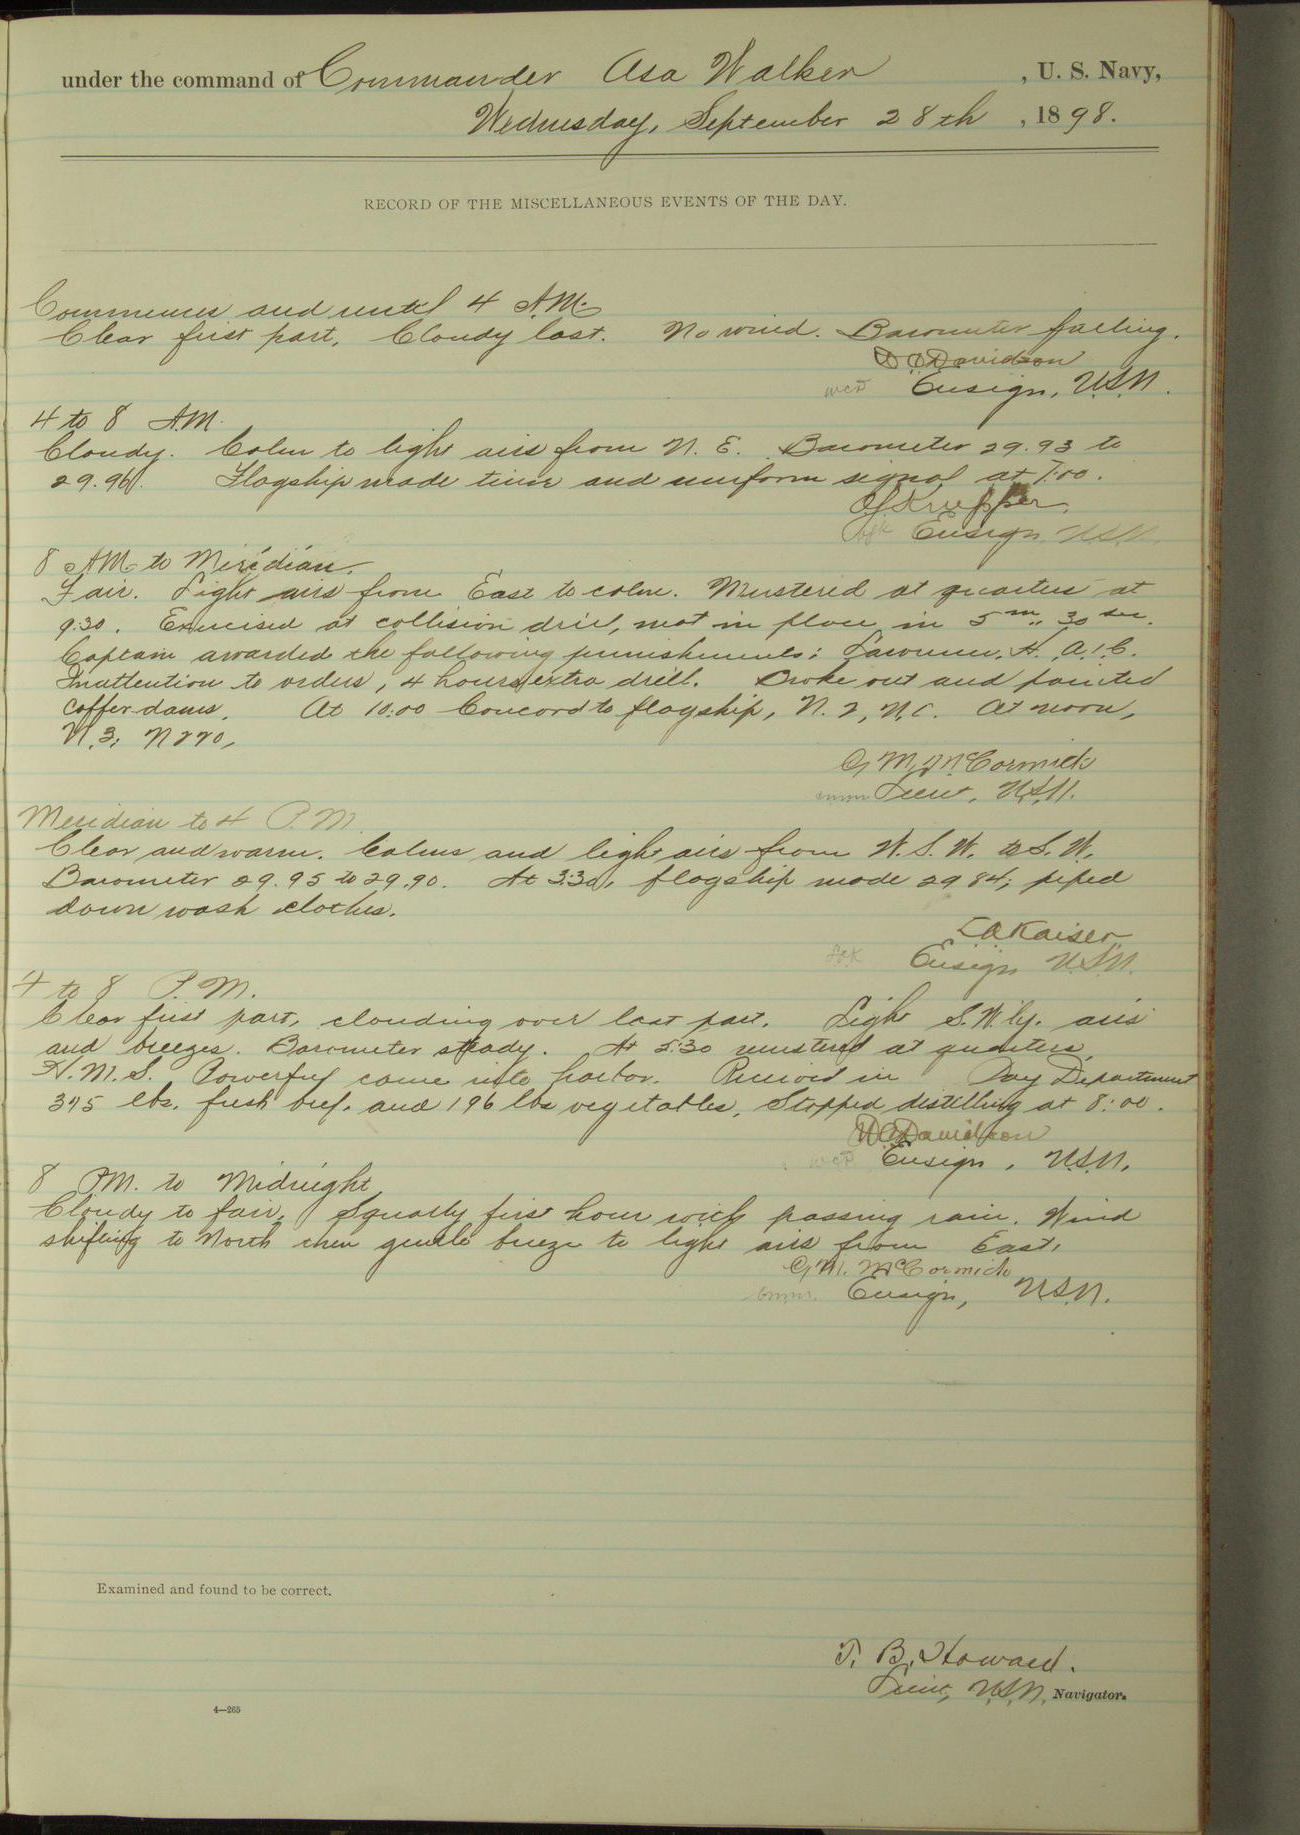 under the command of Commander Asa Walker , U. S. Navy,
Wednesday, September 28th , 1898.
RECORD OF THE MISCELLANEOUS EVENTS OF THE DAY.
Commences and until 4 A.M.
Clear first part, Cloudy last. No wind. Barometer falling.
W C Davidson
Ensign, U.S.N.
4 to 8 A.M.
Cloudy. Calm to light airs from N. E. Barometer 29.93 to
29.96. Flagship made time and uniform signal at 7:00.
Ensign U.S.N.
8 AM to Meridian.
Fair. Light airs from East to calm. Mustered at quarters at
9:30. Exercised at collision drill, mat in place in 5 m 30 sec.
Captain awarded the following punishments: H. A.
Inattention to orders, 4 hours extra drill. Broke out and painted
coffer dams. At 10:00 Concord to flagship, N. 2, N.C. At noon,
N.3; N220,
G M McCormick
Lieut, U.S.N.
Meridian to 4 P.M.
Clear and warm. Calms and light airs from W.S.W. to S.W.
Barometer 29.95 to 29.90. At 3:30, flagship made 2984; piped
down wash clothes.
L A Kaiser
Ensign U.S.N.
4 to 8 P.M.
Clear first part, clouding over last part. Light S.W.ly. airs
and breezes. Barometer steady. At 5:30 mustered at quarters.
H.M.S. Powerful came into harbor. Received in Pay Department
395 lbs. fresh beef. and 196 lbs vegetables. Stopped distilling at 8:00.
W C Davidson
Ensign, U.S.N.
8 PM. to Midnight
Cloudy to fair. Squally first hour with passing rain. Wind
shifting to North then gentle breeze to light airs from East.
G M. McCormick
Ensign, U.S.N.
Examined and found to be correct.
T. B. Howard.
Lieut, U.S.N, Navigator.
4—265